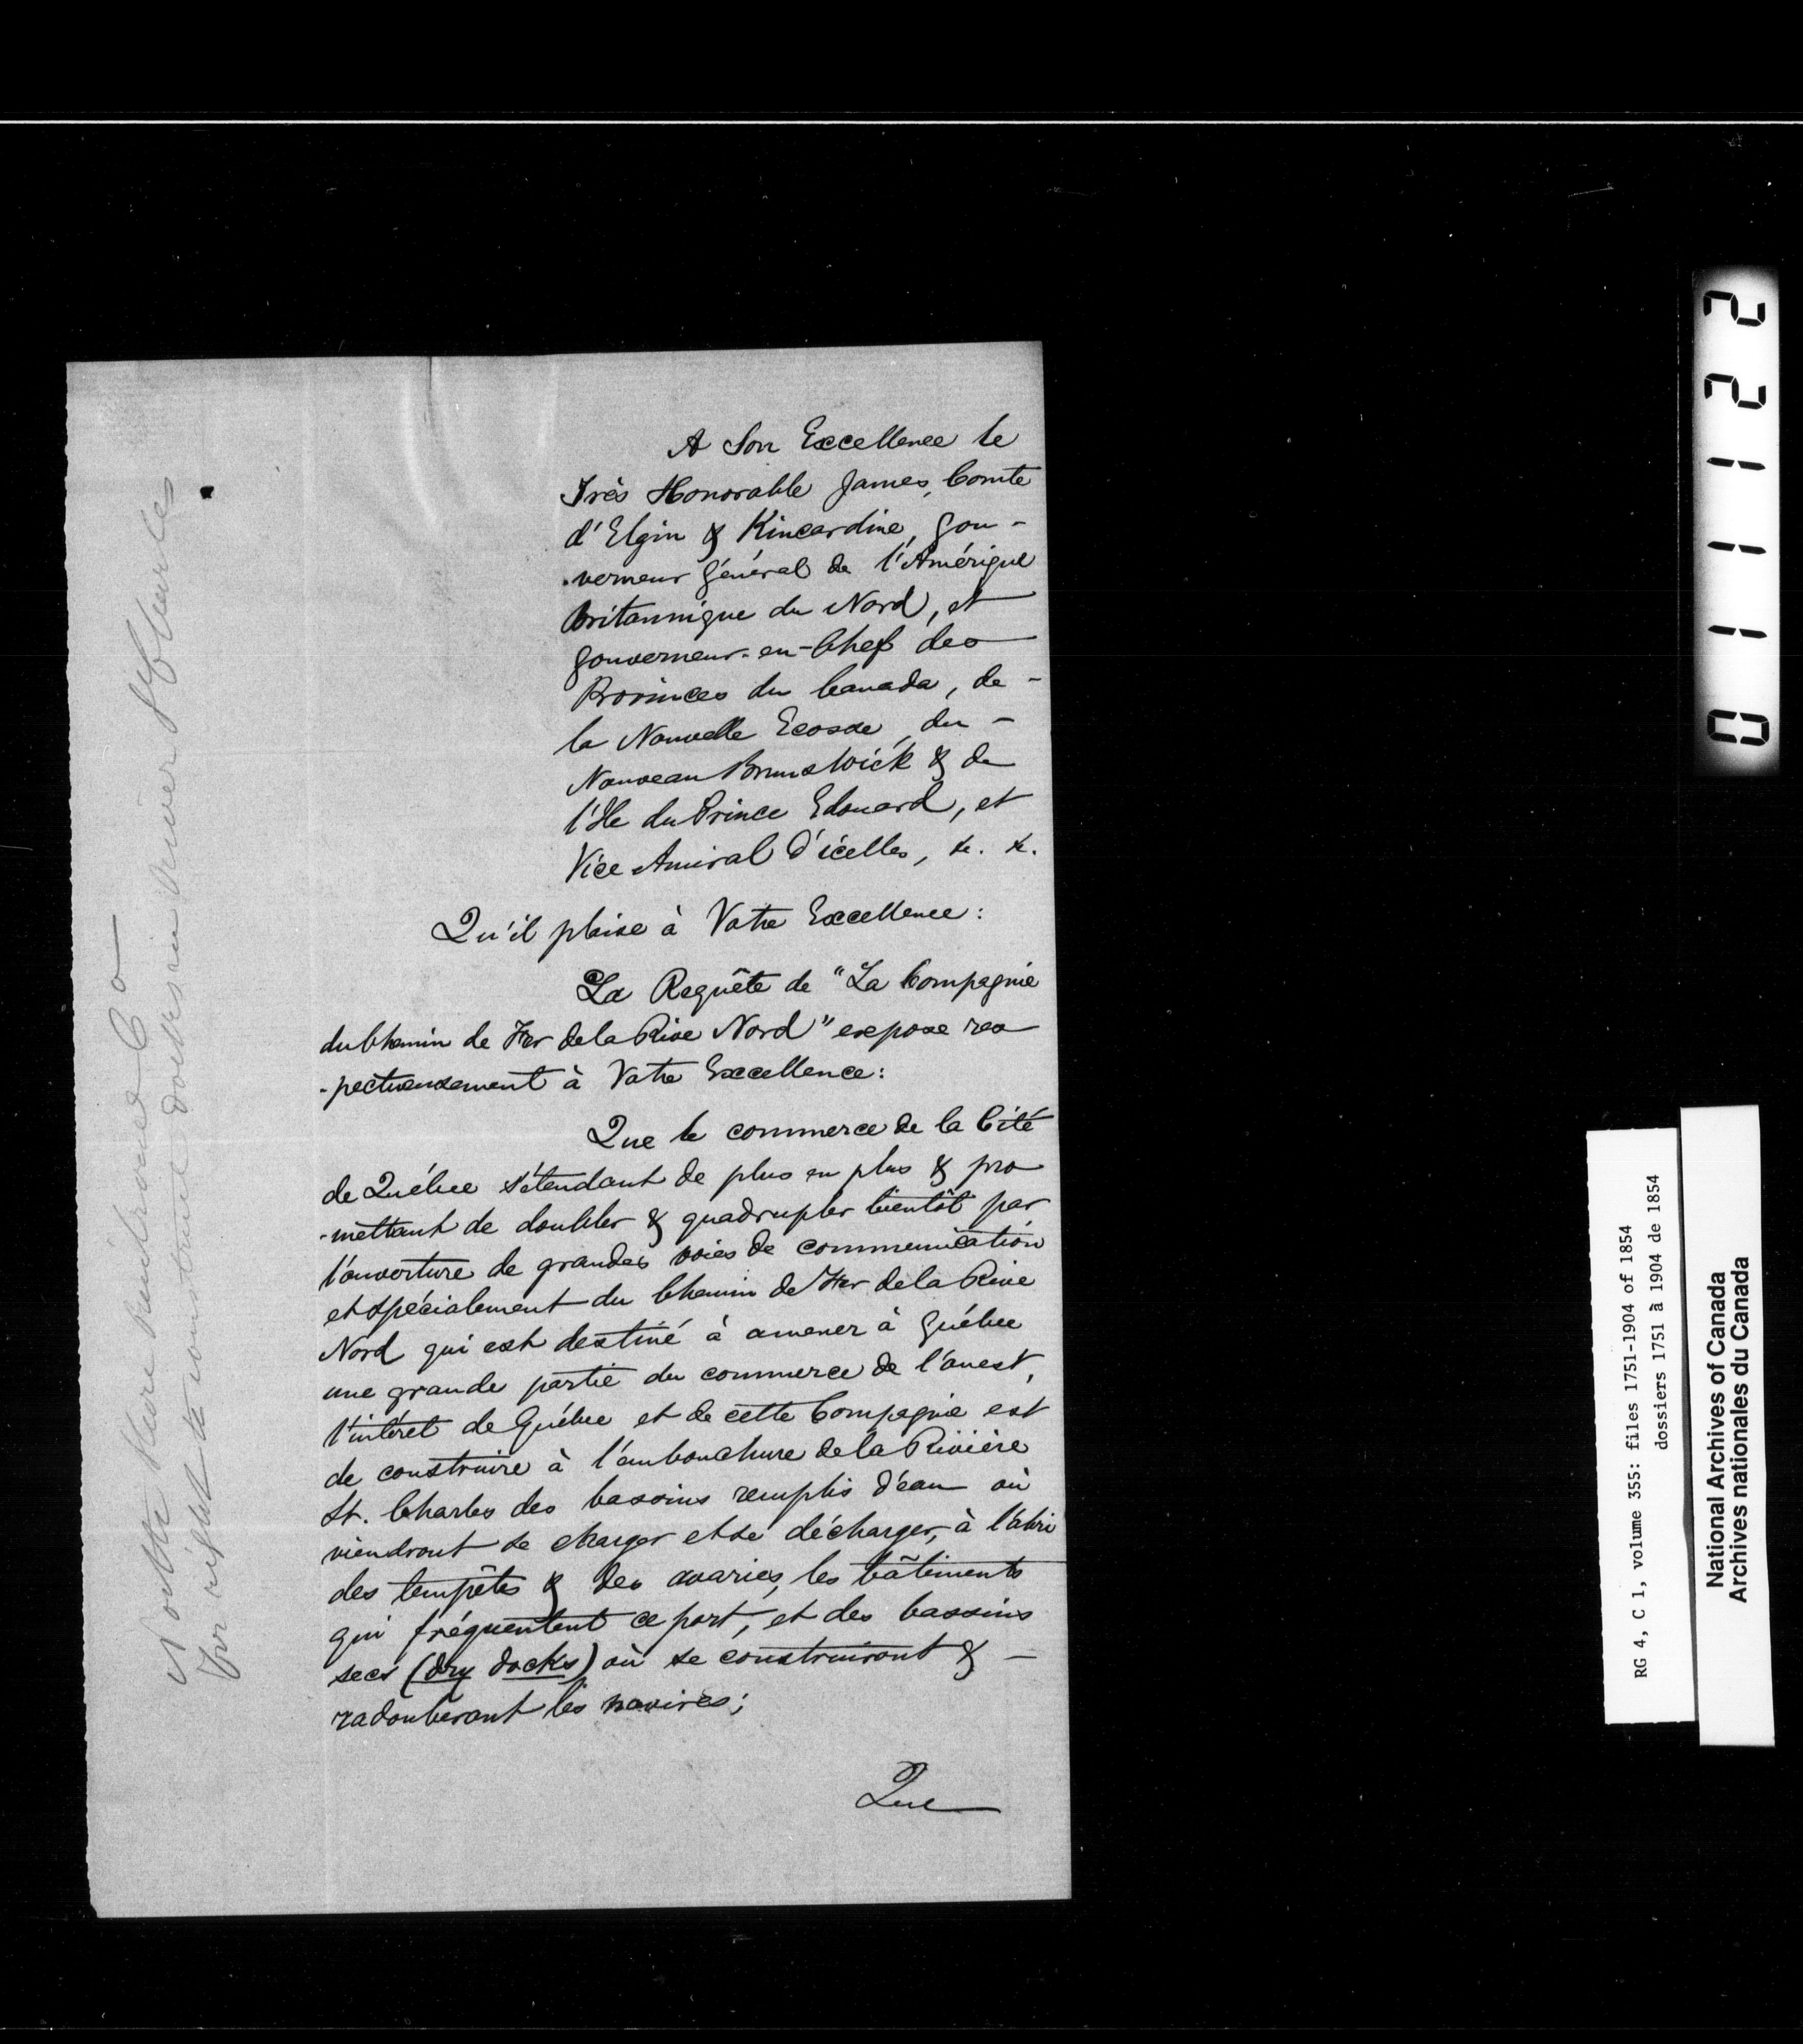 A Son Excellence le
Très Honorable James, Comte
d'Elgin & Kincardine, Gou-
-verneur Général de l'Amérique
Britannique du Nord, et
Gouverneur-en-Chef des
Provinces du Canada, de-
la Nouvelle Ecosse, du-
Nouveau Brunswick & de
l'Ile du Prince Edouard, et
Vice Amiral d'icelles, &c. &c.
Qu'il plaise à Votre Excellence:
La Requête de "La Compagnie
du Chemin de Fer de la Rive Nord" expose res
-pectueusement à Votre Excellence:
Que le commerce de la Cité
de Québec s'étendant de plus en plus & pro
-mettant de doubler & quadrupler bientôt par
l'ouverture de grandes voies de communication
et spécialement du Chemin de Fer de la Rive
Nord qui est destiné à amener à Québec
une grande partie du commerce de l'ouest,
l'intéret de Québec et de cette Compagnie est
de construire à l'embouchure de la Rivière
St. Charles des bassins remplis d'eau où
viendront se charger et se décharger, à l'abri
des tempêtes & des avaries, les bâtiments
qui fréquentent ce port, et des bassins
secs (dry docks) où se construiront & -
radouberont les navires;
Que
North Shore Railroad Co
For right to construct docks in River St Charles
011122
RG 4, C 1, volume 355: files 1751-1904 of 1854
dossiers 1751 à 1904 de 1854
National Archives of Canada
Archives nationales du Canada